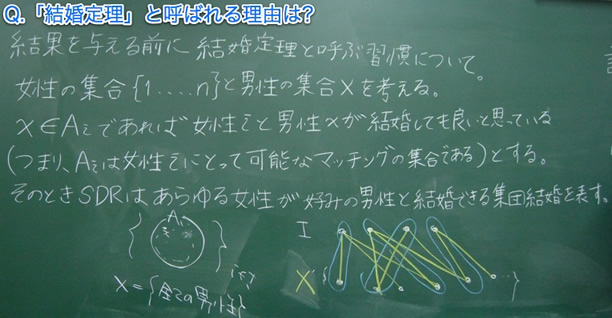 Q.「結婚定理」と呼ばれる理由は?
結果を与える前に 結婚定理と呼ぶ習慣について。
女性の集合{1.....n}と男性の集合Xを考える。
x∈Aiであれば女性iと男性xが結婚しても良いと思っている
(つまり、Aiは女性iにとって可能なマッチングの集合である)とする。
そのときSDRは あらゆる女性が好みの男性と結婚できる集団結婚を表す。
Ai
I
X
X={全ての男性}